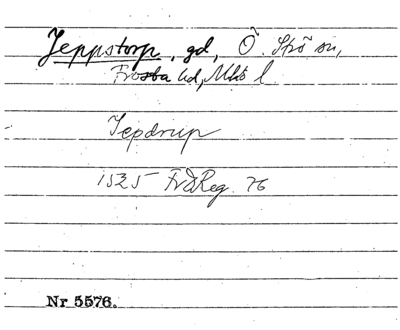 Jeppstorp, gd, Ö. Spö sn,
Frosta hd, Mhs l
Jepdrup
1525 FrdReg. 76
Nr 5576.